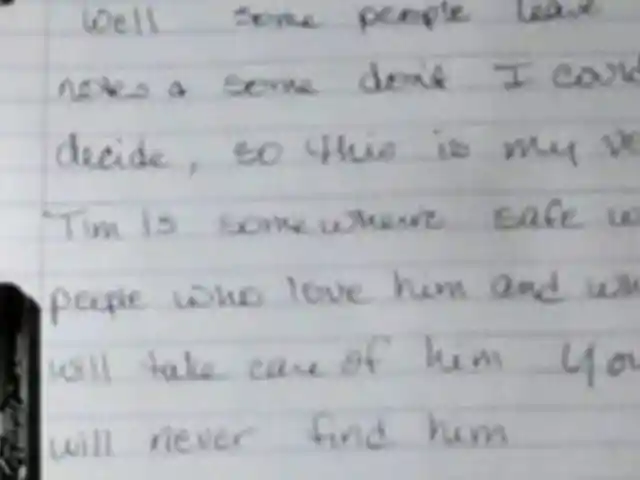 Well some people leave
notes & some don't I could
decide, so this is my ve
Tim is somewhere safe w
people who love him and wh
will take care of him You
will never find him